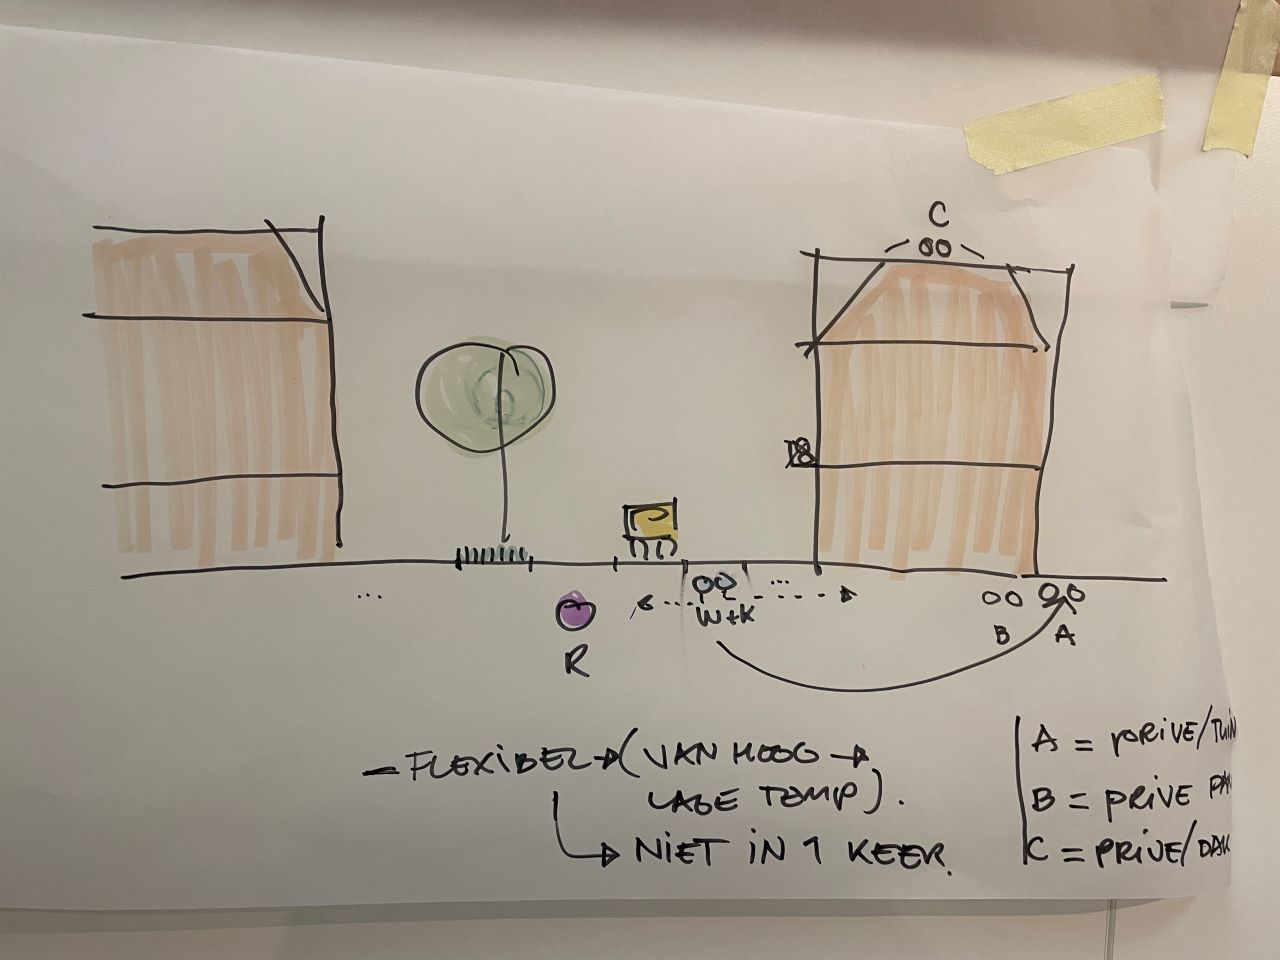 C
...
...
W+K
R
B
A
- FLEXIBEL → (VAN HOOG →
LAGE TEMP).
→ NIET IN 1 KEER.
A = PRIVE/TUIN
B = PRIVE
C = PRIVE/DAK